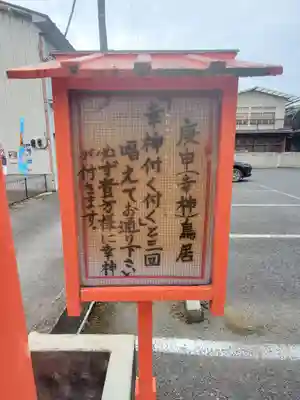 庚申(幸神)鳥居
「幸神付く付くと三回
唱えてお通り下さい
必ず貴方様に幸神
が付きます。